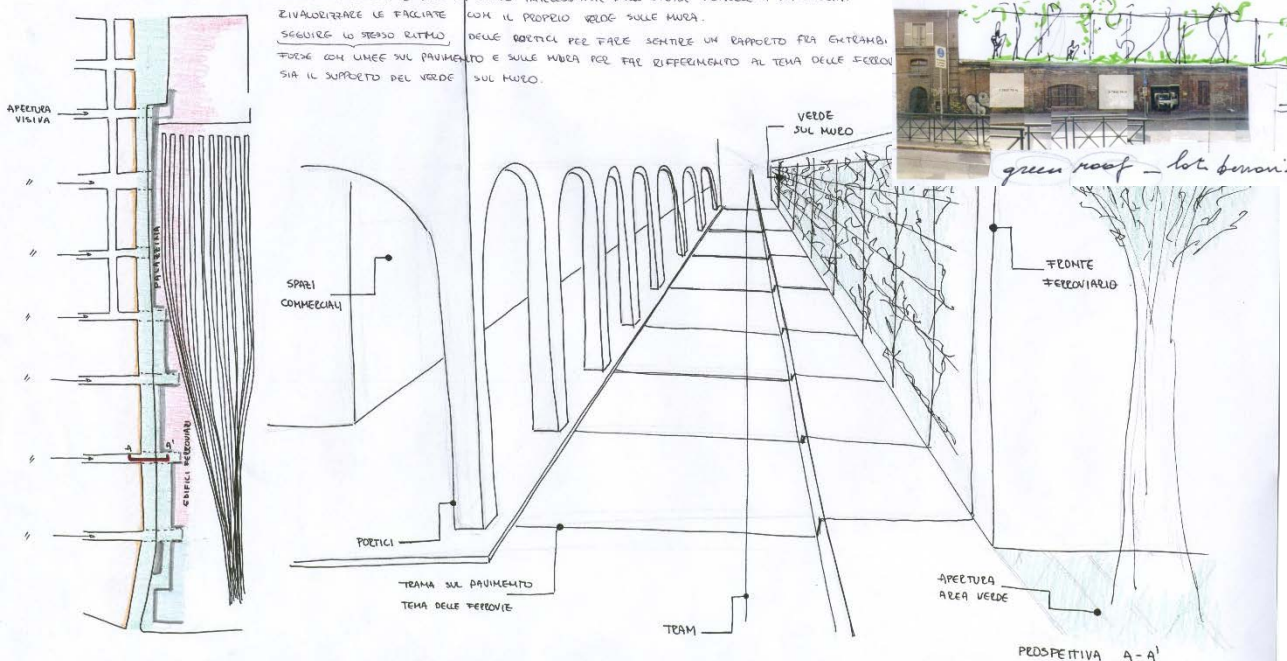 RIVALORIZZARE LE FACCIATE CON IL PROPRIO VERDE SULLE MURA.
SEGUIRE LO STESSO RITMO DELLE PORTICI PER FARE SENTIRE UN RAPPORTO FRA ENTRAMBI
FORSE CON LINEE SUL PAVIMENTO E SULLE MURA PER FAR RIFFERIMENTO AL TEMA DELLE FERROV
SIA IL SUPPORTO DEL VERDE SUL MURO.
green roof - lati
APERTURA
VISIVA
VERDE
SUL MURO
PALAZZINA
SPAZI
COMMERCIALI
FRONTE
FERROVIARIO
A A'
EDIFICI FERROVIARI
PORTICI
TRAMA SUL PAVIMENTO
TEMA DELLE FERROVIE
TRAM
APERTURA
AREA VERDE
PROSPETTIVA A-A'